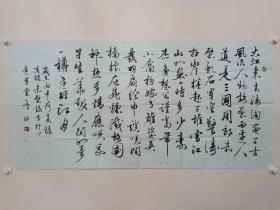 大江東去浪淘盡千古
風流人物故壘西邊人
道是三國周郎赤
壁亂石穿空驚濤
拍岸捲起千堆雪江
山如畫一時多少豪
傑遙想公瑾當年
小喬初嫁了雄姿英
發羽扇綸巾談笑間
檣櫓灰飛煙滅故國
神遊多情應笑我
早生華髮人間如夢
一樽還酹江月